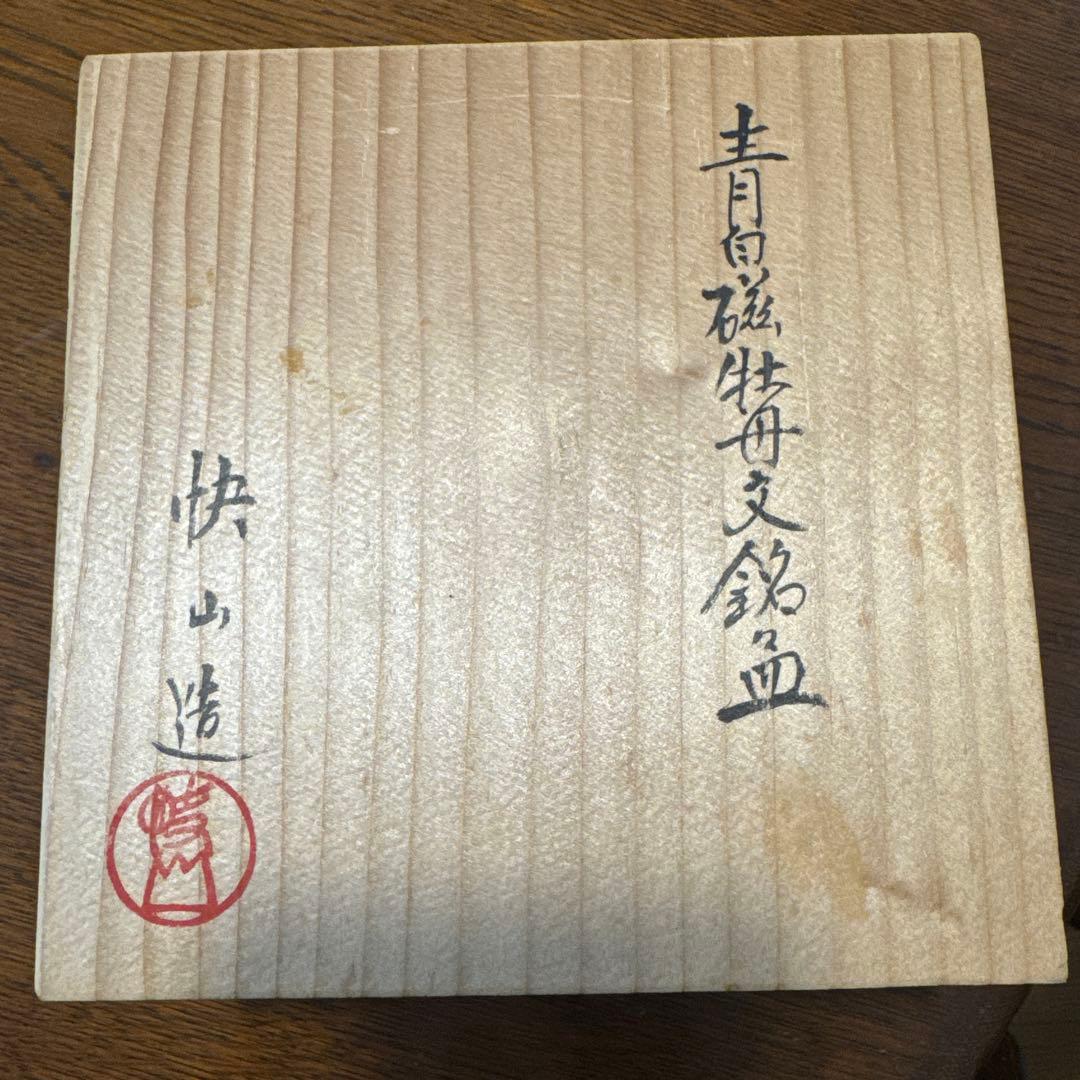 青白磁牡丹文銘皿
快山造